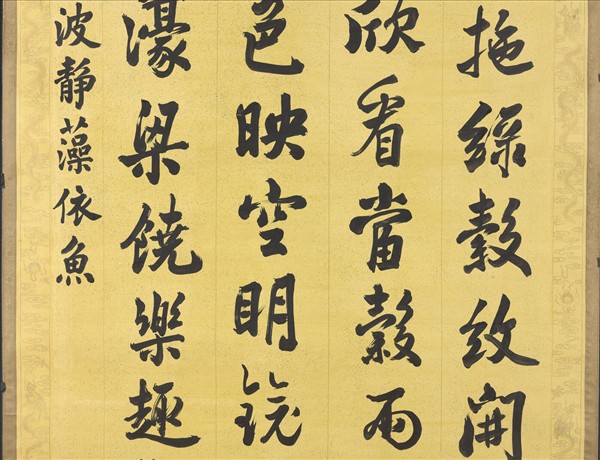 拖綠縠紋開
欣看當穀雨
色映空明鏡
濠梁饒樂趣
波靜藻依魚